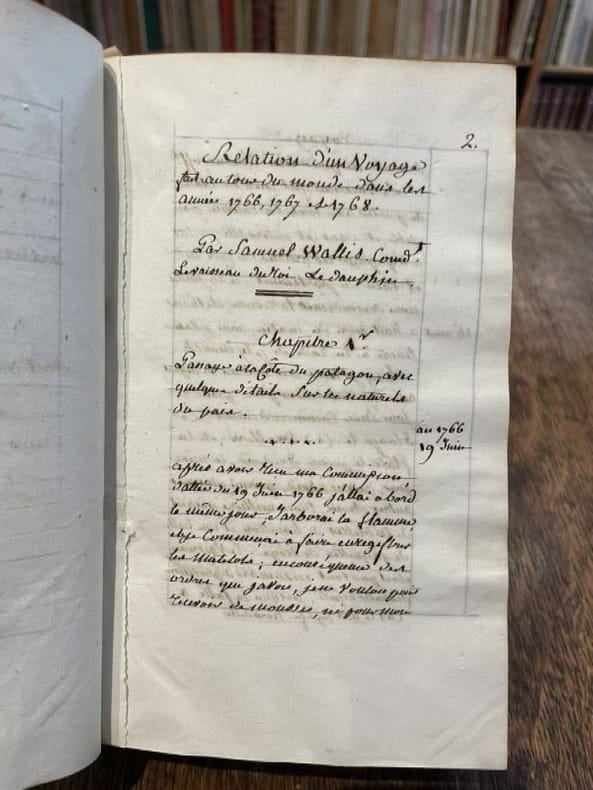 2.
Relation d'un Voyage
fait autour du monde dans les
année 1766, 1767 et 1768.
Par Samuel Wallis. Comdt
Le vaisseau du Roi Le dauphin
Chapitre 1r
Passage à la Côte du patagon, avec
quelques détails sur les naturels
du païs.
an 1766
19 Juin
après avoir reçu ma Commission
dattée du 19 Juin 1766 j'allai abord
le même jour, J'arborai la flamme,
et je Commençai à faire enregistrer
les Matelots; en conséquence des
ordres que j'avois, je ne voulus point
recevoir de mousses, ni pour moi